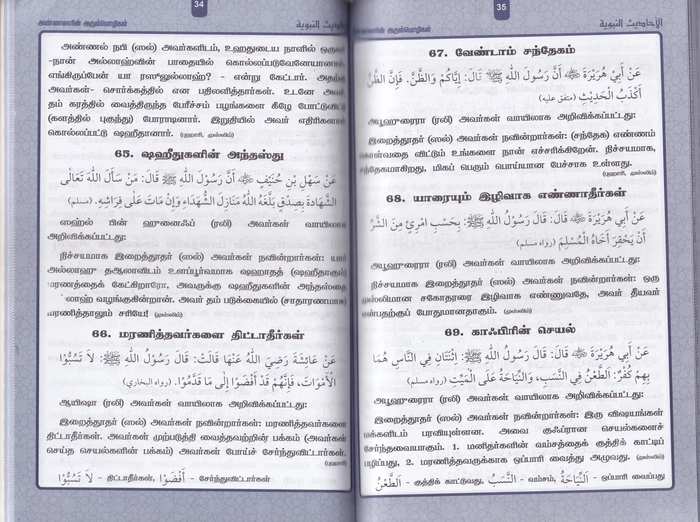 34
அண்ணலாரின் அருள்மொழிகள்
அண்ணல் நபி (ஸல்) அவர்களிடம், உஹதுடைய நாளில் ஒருவர்
-நான் அல்லாஹ்வின் பாதையில் கொல்லப்படுவேனேயானால்
எங்கிருப்பேன் யா ரஸூலுல்லாஹ்? - என்று கேட்டார்.
அவர்கள்- சொர்க்கத்தில் என பதிலளித்தார்கள். உடனே அவர்
தம் கரத்தில் வைத்திருந்த பேரீச்சம் பழங்களை கீழே போட்டுவிட்டு
(களத்தில் புகுந்து) போராடினார். இறுதியில் அவர் எதிரிகளால்
கொல்லப்பட்டு ஷஹீதானார். (புஹாரி, முஸ்லிம்)
65. ஷஹீதுகளின் அந்தஸ்து
عَنْ سَهْلِ بْنِ حُنَيْفٍ أَنَّ رَسُولَ اللَّهِ ﷺ قَالَ: مَنْ سَأَلَ اللَّهَ تَعَالَى
الشَّهَادَةَ بِصِدْقٍ بَلَّغَهُ اللَّهُ مَنَازِلَ الشُّهَدَاءِ وَإِنْ مَاتَ عَلَى فِرَاشِهِ. (مسلم)
ஸஹ்ல் பின் ஹுனைஃப் (ரலி) அவர்கள் வாயிலாக
அறிவிக்கப்பட்டது:
நிச்சயமாக இறைத்தூதர் (ஸல்) அவர்கள் நவின்றார்கள்: யார்
அல்லாஹு தஆலாவிடம் உளப்பூர்வமாக ஷஹாதத் (ஷஹீதாகும்)
மரணத்தைக் கேட்கிறாரோ, அவருக்கு ஷஹீதுகளின் அந்தஸ்தை
லாஹ் வழங்குகின்றான். அவர் தம் படுக்கையில் (சாதாரணமாக)
மரணித்தாலும் சரியே! (முஸ்லிம்)
66. மரணித்தவர்களை திட்டாதீர்கள்
عَنْ عَائِشَةَ رَضِيَ اللَّهُ عَنْهَا قَالَتْ: قَالَ رَسُولُ اللَّهِ ﷺ: لاَ تَسُبُّوا
الأَمْوَاتَ، فَإِنَّهُمْ قَدْ أَفْضَوْا إِلَى مَا قَدَّمُوا. (رواه البخاري)
ஆயிஷா (ரலி) அவர்கள் வாயிலாக அறிவிக்கப்பட்டது:
இறைத்தூதர் (ஸல்) அவர்கள் நவின்றார்கள்: மரணித்தவர்களை
திட்டாதீர்கள். அவர்கள் முற்படுத்தி வைத்தவற்றின் பக்கம் (அவர்கள்
செய்த செயல்களின் பக்கம்) அவர்கள் போய்ச் சேர்ந்துவிட்டார்கள்.
(புஹாரி)
لاَ تَسُبُّوا - திட்டாதீர்கள், أَفْضَوْا - சேர்ந்துவிட்டார்கள்
35
الأحاديث النبوية
67. வேண்டாம் சந்தேகம்
عَنْ أَبِي هُرَيْرَةَ ﷺ أَنَّ رَسُولَ اللَّهِ ﷺ قَالَ: إِيَّاكُمْ وَالظَّنَّ. فَإِنَّ الظَّنَّ
أَكْذَبُ الْحَدِيثِ (متفق عليه)
அபூஹுரைரா (ரலி) அவர்கள் வாயிலாக அறிவிக்கப்பட்டது:
இறைத்தூதர் (ஸல்) அவர்கள் நவின்றார்கள்: (சந்தேக) எண்ணம்
கொள்வதை விட்டும் உங்களை நான் எச்சரிக்கிறேன். நிச்சயமாக,
சந்தேகமாகிறது, மிகப் பெரும் பொய்யான பேச்சாக உள்ளது.
(புஹாரி, முஸ்லிம்)
68. யாரையும் இழிவாக எண்ணாதீர்கள்
عَنْ أَبِي هُرَيْرَةَ ﷺ قَالَ: قَالَ رَسُولُ اللَّهِ ﷺ: بِحَسْبِ امْرِئٍ مِنَ الشَّرِّ
أَنْ يَحْقِرَ أَخَاهُ الْمُسْلِمَ (رواه مسلم)
அபூஹுரைரா (ரலி) அவர்கள் வாயிலாக அறிவிக்கப்பட்டது:
நிச்சயமாக இறைத்தூதர் (ஸல்) அவர்கள் நவின்றார்கள்: ஒரு
முஸ்லிமான சகோதரரை இழிவாக எண்ணுவதே, அவர் தீயவர்
என்பதற்குப் போதுமானதாகும். (முஸ்லிம்)
69. காஃபிரின் செயல்
عَنْ أَبِي هُرَيْرَةَ ﷺ قَالَ: قَالَ رَسُولُ اللَّهِ ﷺ: اثْنَتَانِ فِي النَّاسِ هُمَا
بِهِمْ كُفْرٌ: الطَّعْنُ فِي النَّسَبِ، وَالنِّيَاحَةُ عَلَى الْمَيِّتِ (رواه مسلم)
அபூஹுரைரா (ரலி) அவர்கள் வாயிலாக அறிவிக்கப்பட்டது:
இறைத்தூதர் (ஸல்) அவர்கள் நவின்றார்கள்: இரு விஷயங்கள்
மக்களிடம் பரவியுள்ளன. அவை குஃப்ரான செயல்களைச்
சேர்ந்தவையாகும். 1. மனிதர்களின் வம்சத்தைக் குத்திக் காட்டிப்
பழிப்பது, 2. மரணித்தவருக்காக ஒப்பாரி வைத்து அழுவது. (முஸ்லிம்)
الطَّعْنُ - குத்திக் காட்டுவது, النَّسَبُ - வம்சம், النِّيَاحَةُ - ஒப்பாரி வைப்பது